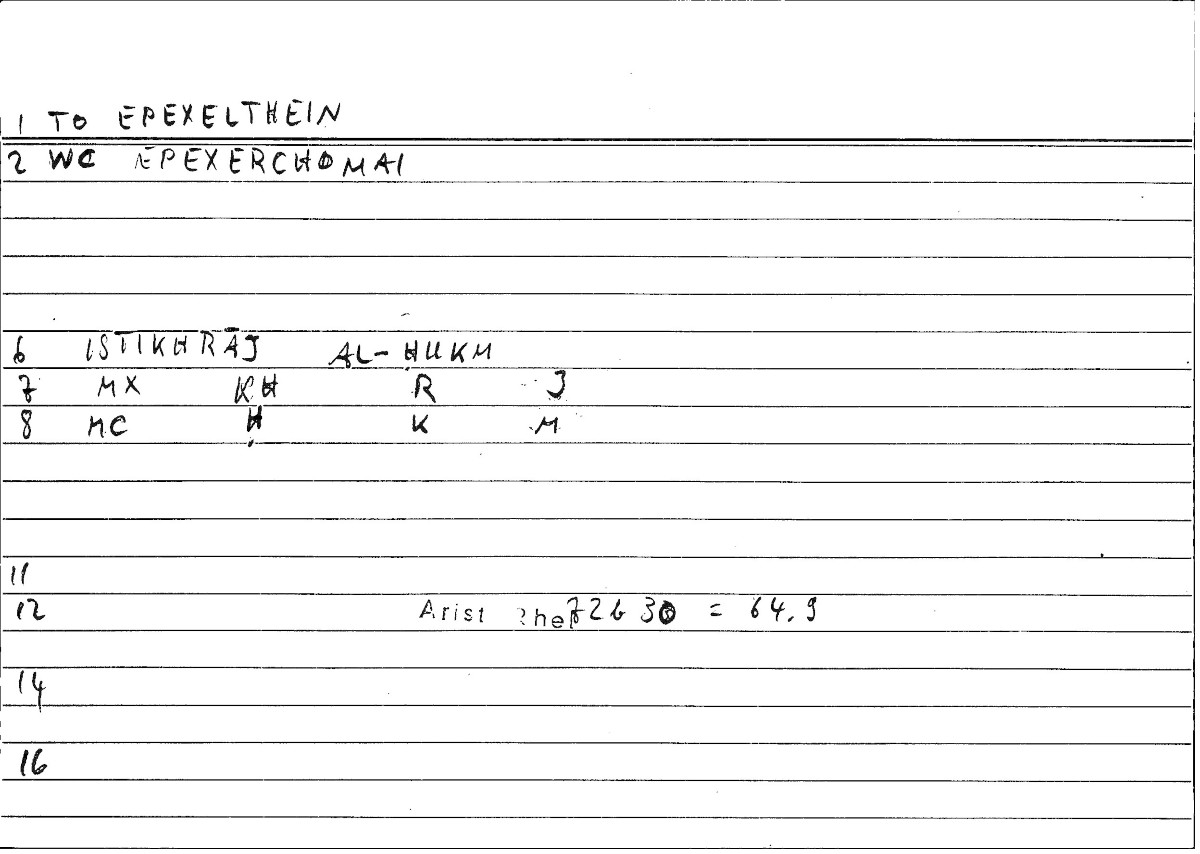 1 TO EPEXELTHEIN
2 WC EPEXERCHOMAI
6 ISTIKHRĀJ AL-ḤUKM
7 MX KH R J
8 MC Ḥ K M
11
12 Arist Rhet 72b 30 = 64.9
14
16